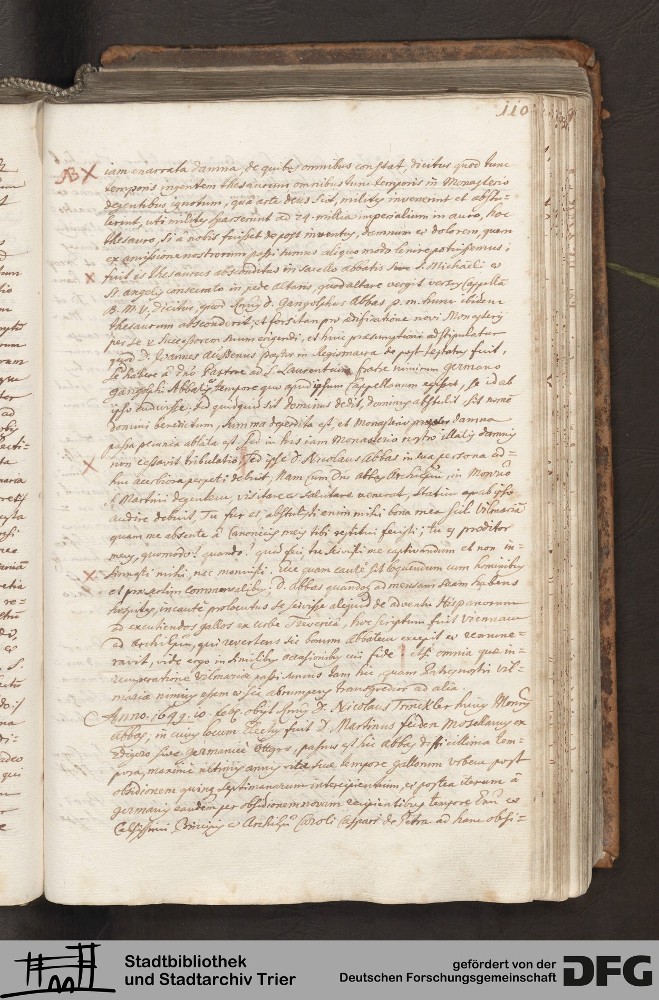 110
NB X iam enarrata damna, de quibus omnibus constat, dicitur quod tunc
temporis ingentem thesaurum omnibus tunc temporis in Monasterio
degentibus ignotum, qua arte deus scit, milites invenerint et abstu-
lerint, uti milites sparserunt ad 24 millia imperialium in auro, hoc
thesauro, si a nobis fuisset de post inventus, damnum et dolorem, quem
ex amissione nostrorum passi sumus aliquo modo lenire potuissemus;
fuit is thesaurus absconditus in sacello abbatis sive S. Michaelis et
SS. angelis consecrato in pede altaris, quod altare vergit versus Capellam
B. M. V. dicitur, quod Dnus D. Gangolphus Abbas p. m. hunc ibidem
thesaurum absconderit, et forsitan pro edificatione novi Monasterij
per se v. Successorem suum erigendi, et huic presumptioni adstipulatur
quod D. Joannes de Benus pastor in de post testatus fuit,
se habere a dno Pastore ad S. Laurentium fratre nimirum germano
Gangolphi Abbatis, tempore quo apud ipsum Capellanum egisset, se id ab
ipso audivisse. sed quidquid sit dominus dedit, dominus abstulit sit nomen
domini benedictum, summa deperdita est, et Monasterio preter damna
passa pecunia ablata est. sed in his iam Monasterio nostro illatis damnis
X non cessavit tribulatio, sed ipse D. Nicolaus Abbas in sua persona ad-
huc acerbiora perpeti debuit, Nam cum Dnus abbas Archiepum in Monrio
S. Martini degentem, visitare et salutare venerat, statim ab ipso
audire debuit, Tu fur es, abstulisti enim mihi bona mea scil. Vilmariam
quam me absente a Canonicis meis tibi restitui fecisti; tu es proditor
meus, quomodo? quando? quid scis, tu scivisti me captivandum et non in-
X sinuasti mihi, nec monuisti. Vide quam caute sit loquendum cum hominibus
et presertim commensalibus. D. Abbas quondam ad mensam suam habens
hospites, incaute prolocutus se scivisse aliquid de adventu Hispanorum
ad excutiendos gallos ex urbe Treverica, hoc scriptum fuit Viennam
ad Archiepum, qui revertens sic bonum Abbatem excepit et remune-
ravit, vide ergo in similibus occasionibus cui fide! Etsi omnia que in
recuperatione Vilmarie passi sumus tam hic, quam antiqnostri Vil-
marie nimius essem et sic abrumpens transgredior ad alia.
Anno 1649. 10. feb. obijt Dnus D. Nicolaus Trinckler huius Monrij
Abbas, in cuius locum electus fuit D. Martinus feiden Mosellanus ex
sive germanice , passus est hic abbas difficillima tem-
pora, maxime ultimis annis vite sue tempore gallorum urbem, post
obsidionem quinque septimanarum intercipientium, et postea iterum a
germanis eandem per obsidionem novam recipientibus tempore Emi et
Celsissimi Principis et Archiepi Caroli Caspari de Petra ad hanc obsi-
Stadtbibliothek
und Stadtarchiv Trier
gefördert von der
Deutschen Forschungsgemeinschaft
DFG